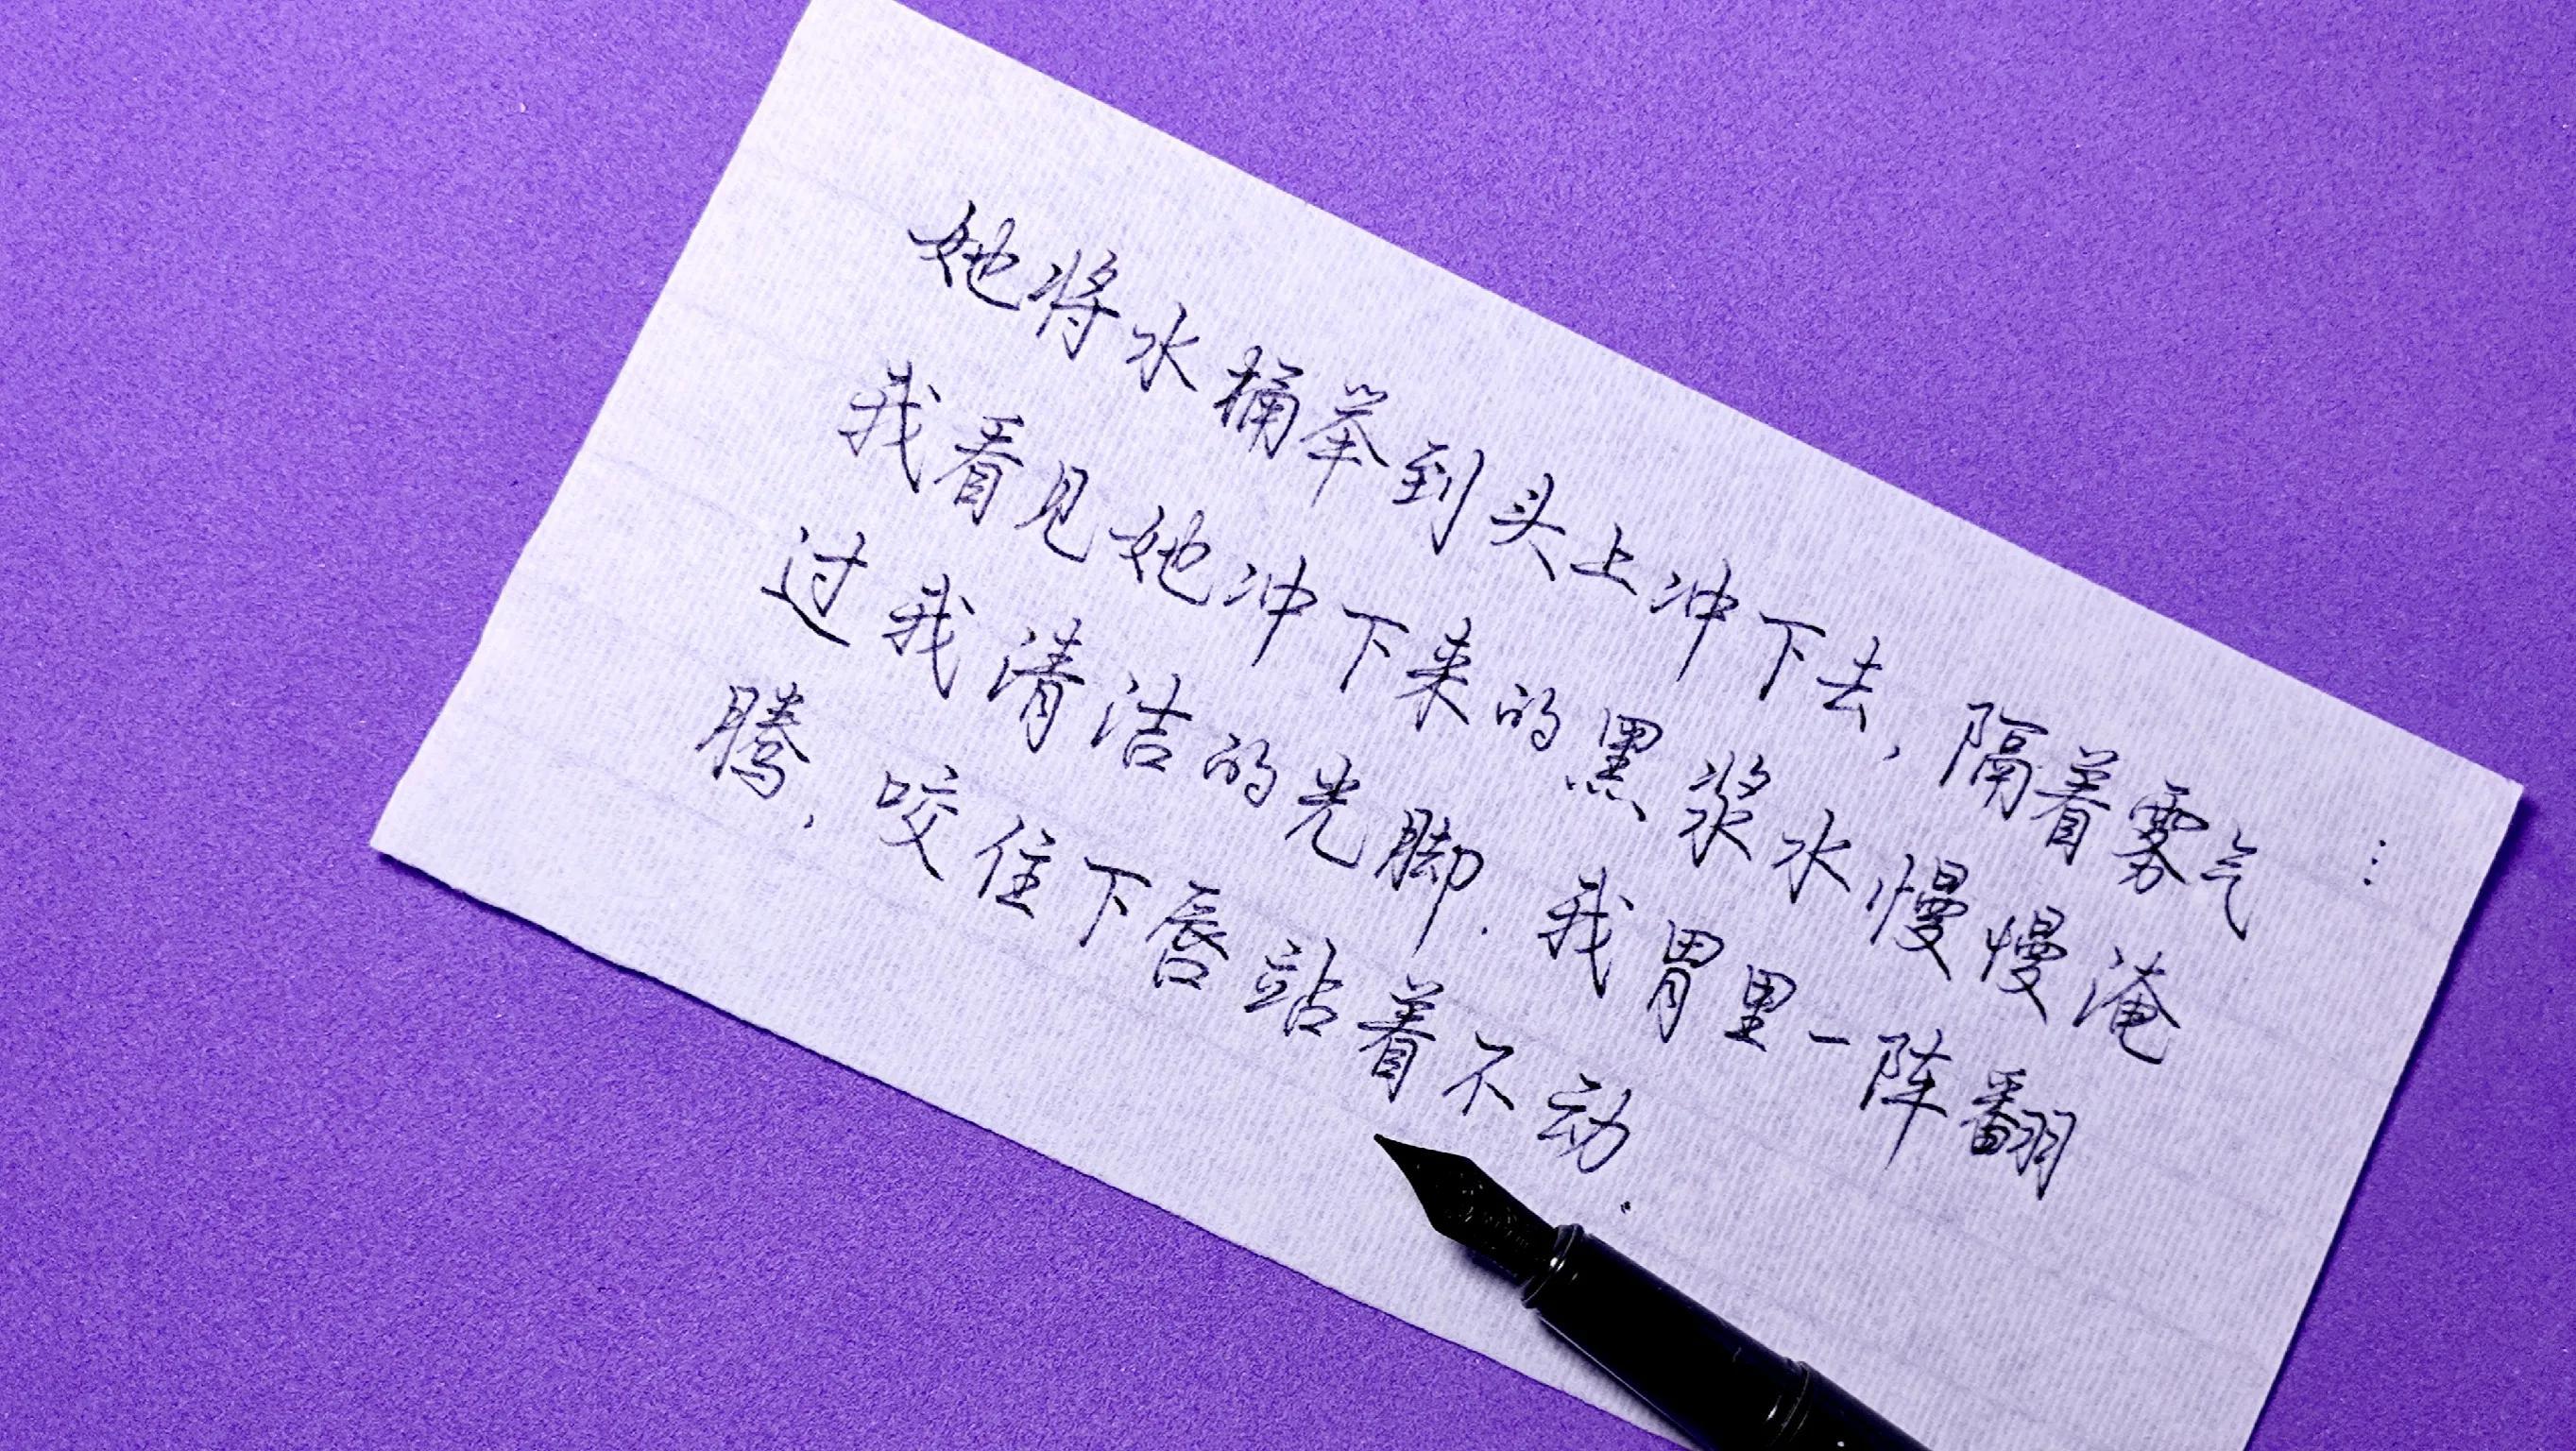 她将水桶举到头上冲下去,隔着雾气…
我看见她冲下来的黑浆水慢慢淹
过我清洁的光脚.我胃里一阵翻
腾,咬住下唇站着不动.